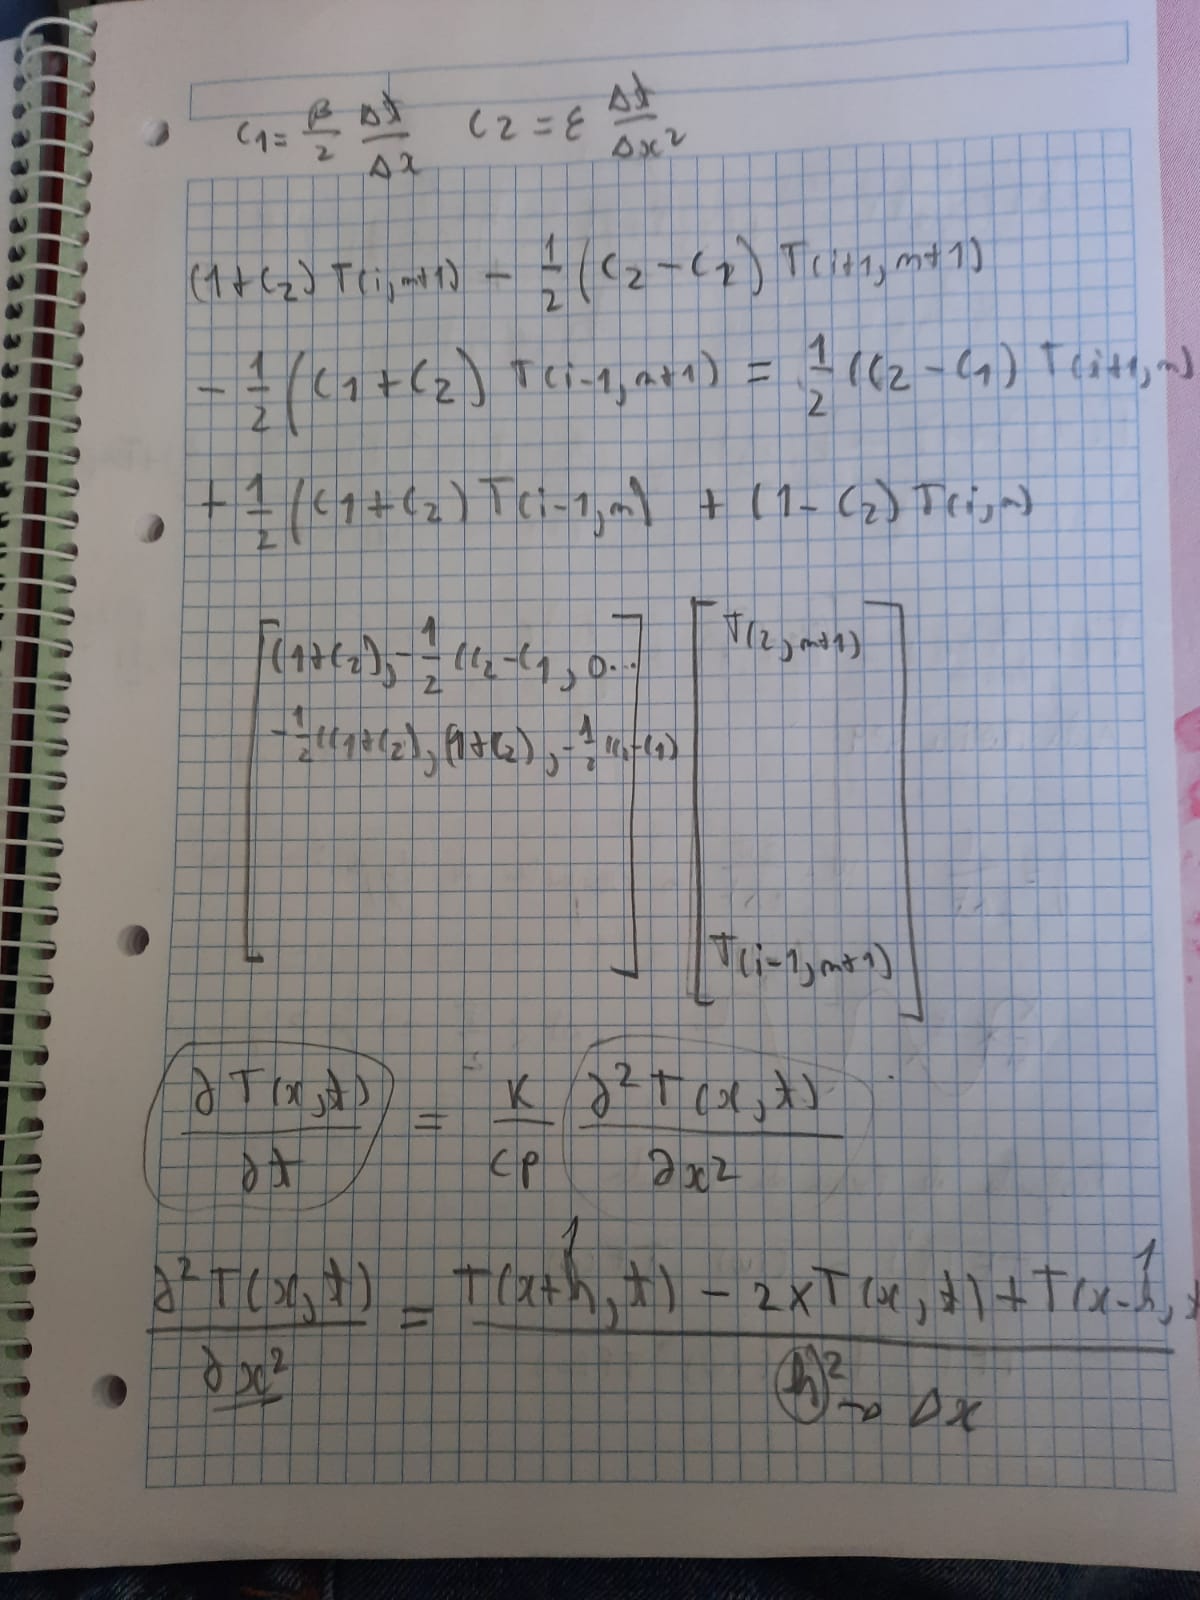 C1 = β/2 Δt/Δx C2 = ε Δt/Δx²
(1+C2) T(i,n+1) - 1/2 (C2-C2) T(i+1,n+1)
- 1/2 (C1+C2) T(i-1,n+1) = 1/2 (C2-C1) T(i+1,n)
+ 1/2 (C1+C2) T(i-1,n) + (1-C2) T(i,n)
[(1+C2), -1/2 (C2-C1, 0...] [T(2,n+1)
-1/2 (C1+C2), (1+C2), -1/2
T(i-1,n+1)]
∂T(x,t)/∂t = K/CP ∂²T(x,t)/∂x²
∂²T(x,t)/∂x² = T(x+h,t) - 2xT(x,t) + T(x-h, / h² → Δx